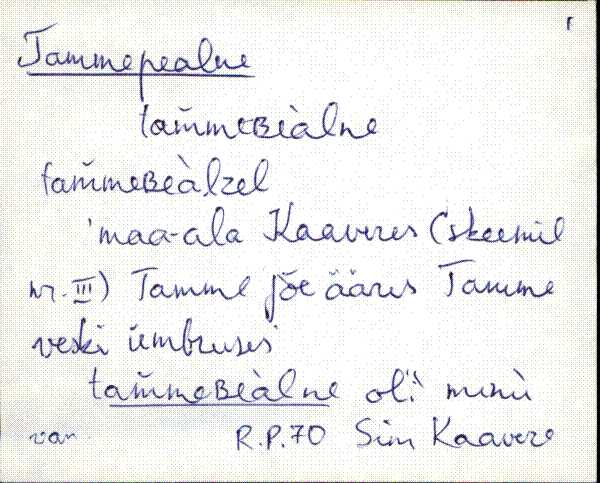 Tammepealne
tam̆meʙèàlne
tam̆meʙèàlzel
'maa-ala Kaaveres (skeemil
nr. III) Tamme jõe ääres Tamme
veski ümbruses'
tam̆meʙèàlne ol'i minù
van R.P.70 Sim Kaavere